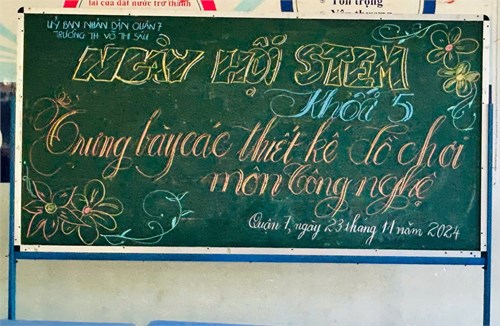 lai của đất nước trở thành
Tôn trọng
UỶ BAN NHÂN DÂN QUẬN 7
TRƯỜNG TH VÕ THỊ SÁU
NGÀY HỘI STEM
Khối 5
Trưng bày các thiết kế đồ chơi
môn Công nghệ
Quận 7, ngày 23 tháng 11 năm 2024